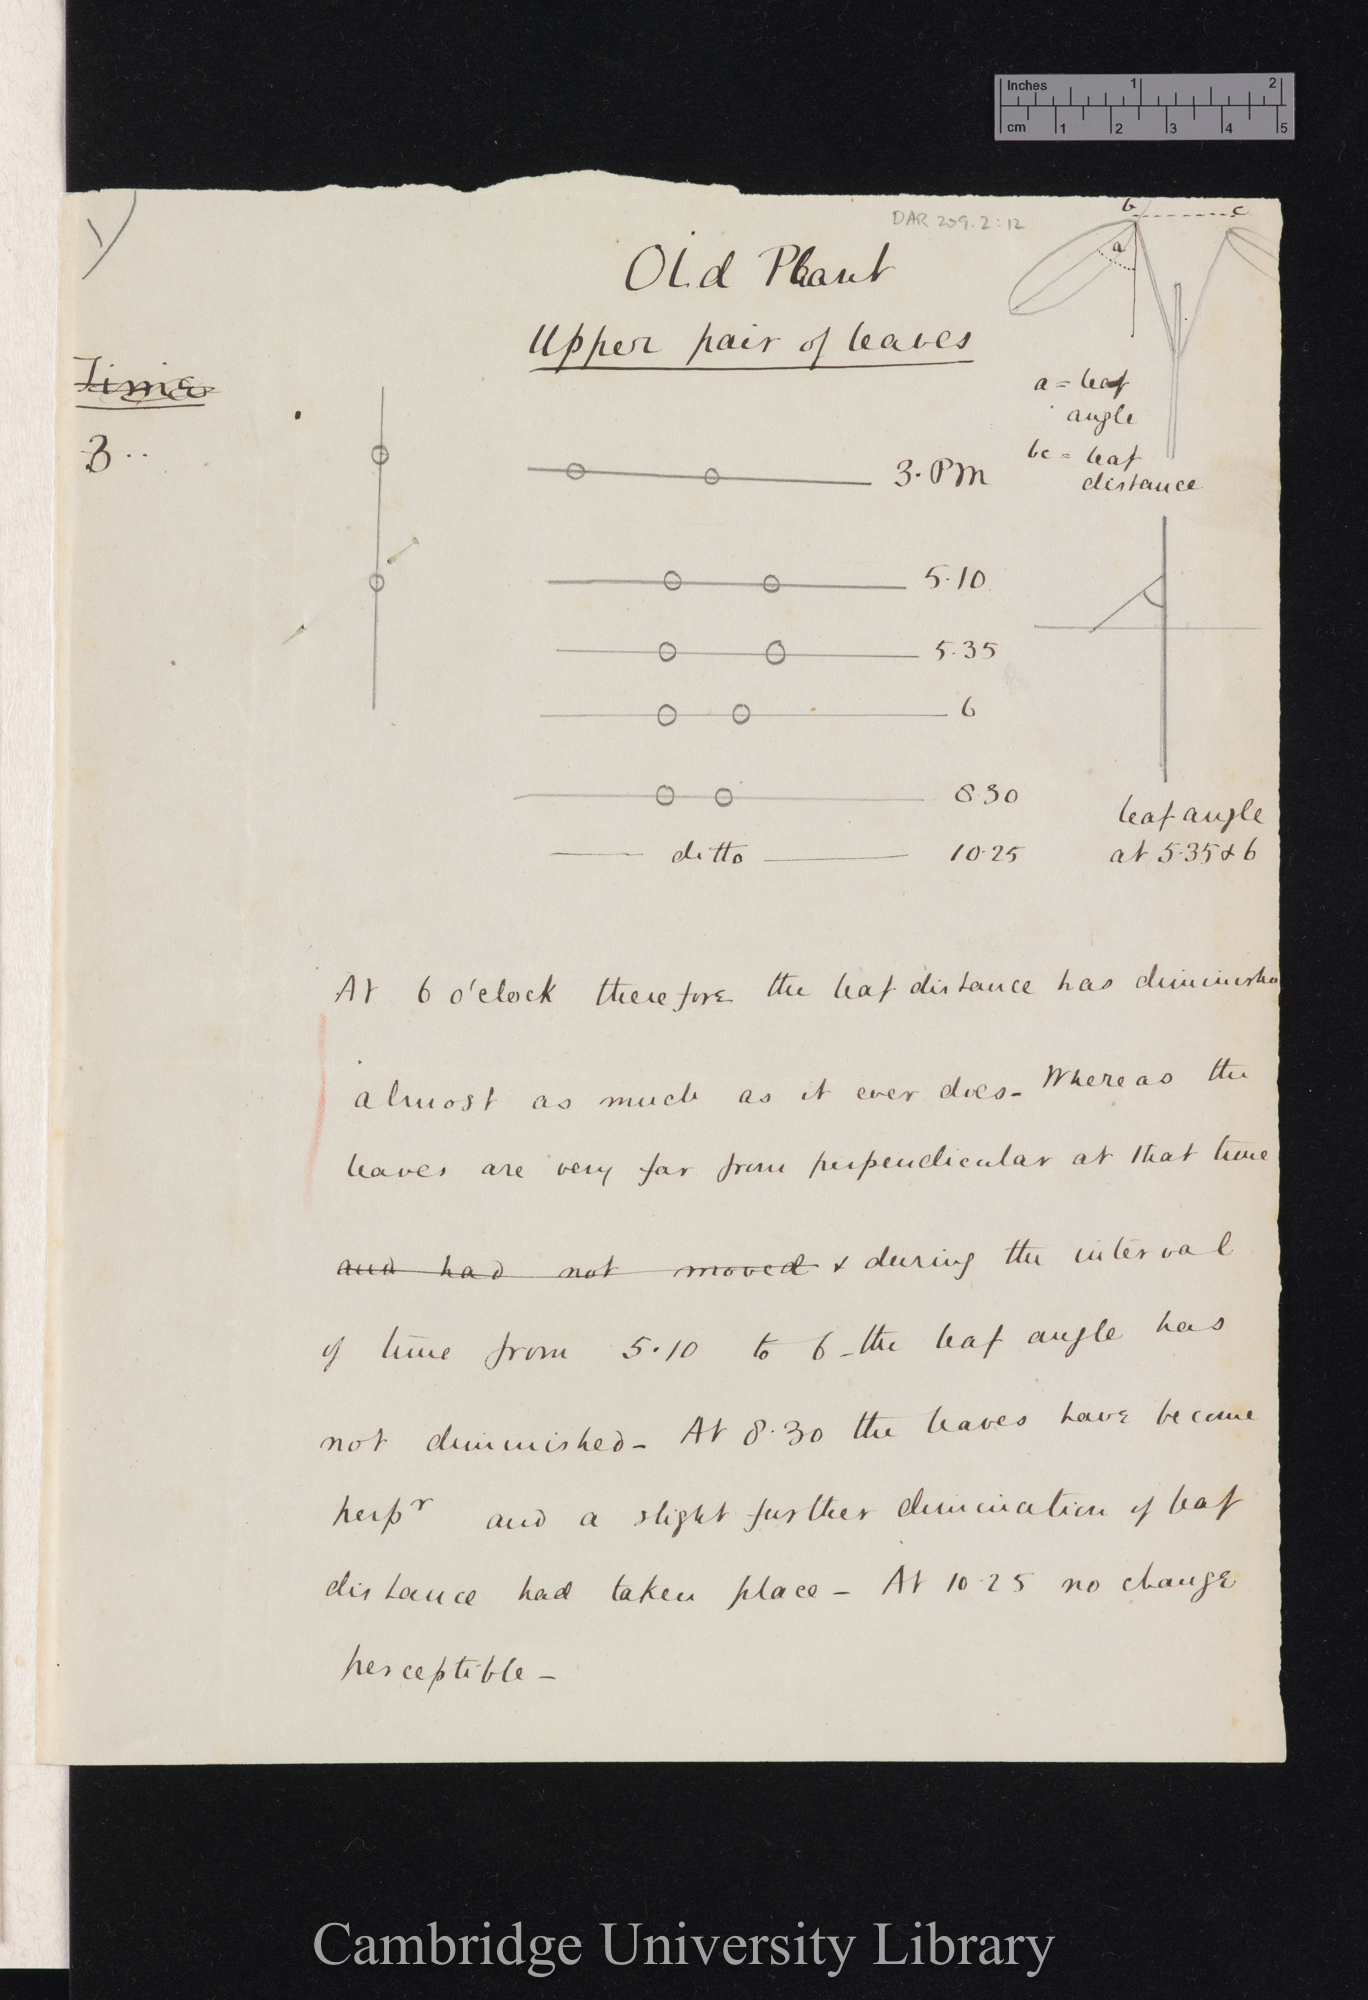 Inches 1 2
cm 1 2 3 4 5
DAR 209.2:12
b c
a
Old Plant
Upper pair of leaves
Time
3..
a = leaf
angle
bc = leaf
distance
3. PM
5.10
5.35
6
8.30
ditto 10.25
leaf angle
at 5.35 & 6
At 6 o'clock therefore the leaf distance has diminishe
almost as much as it ever does - Whereas the
leaves are very far from perpendicular at that time
and had not moved & during the interval
of time from 5.10 to 6 - the leaf angle has
not diminished - At 8.30 the leaves have become
perpr and a slight further diminution of leaf
distance had taken place - At 10.25 no change
perceptible -
Cambridge University Library